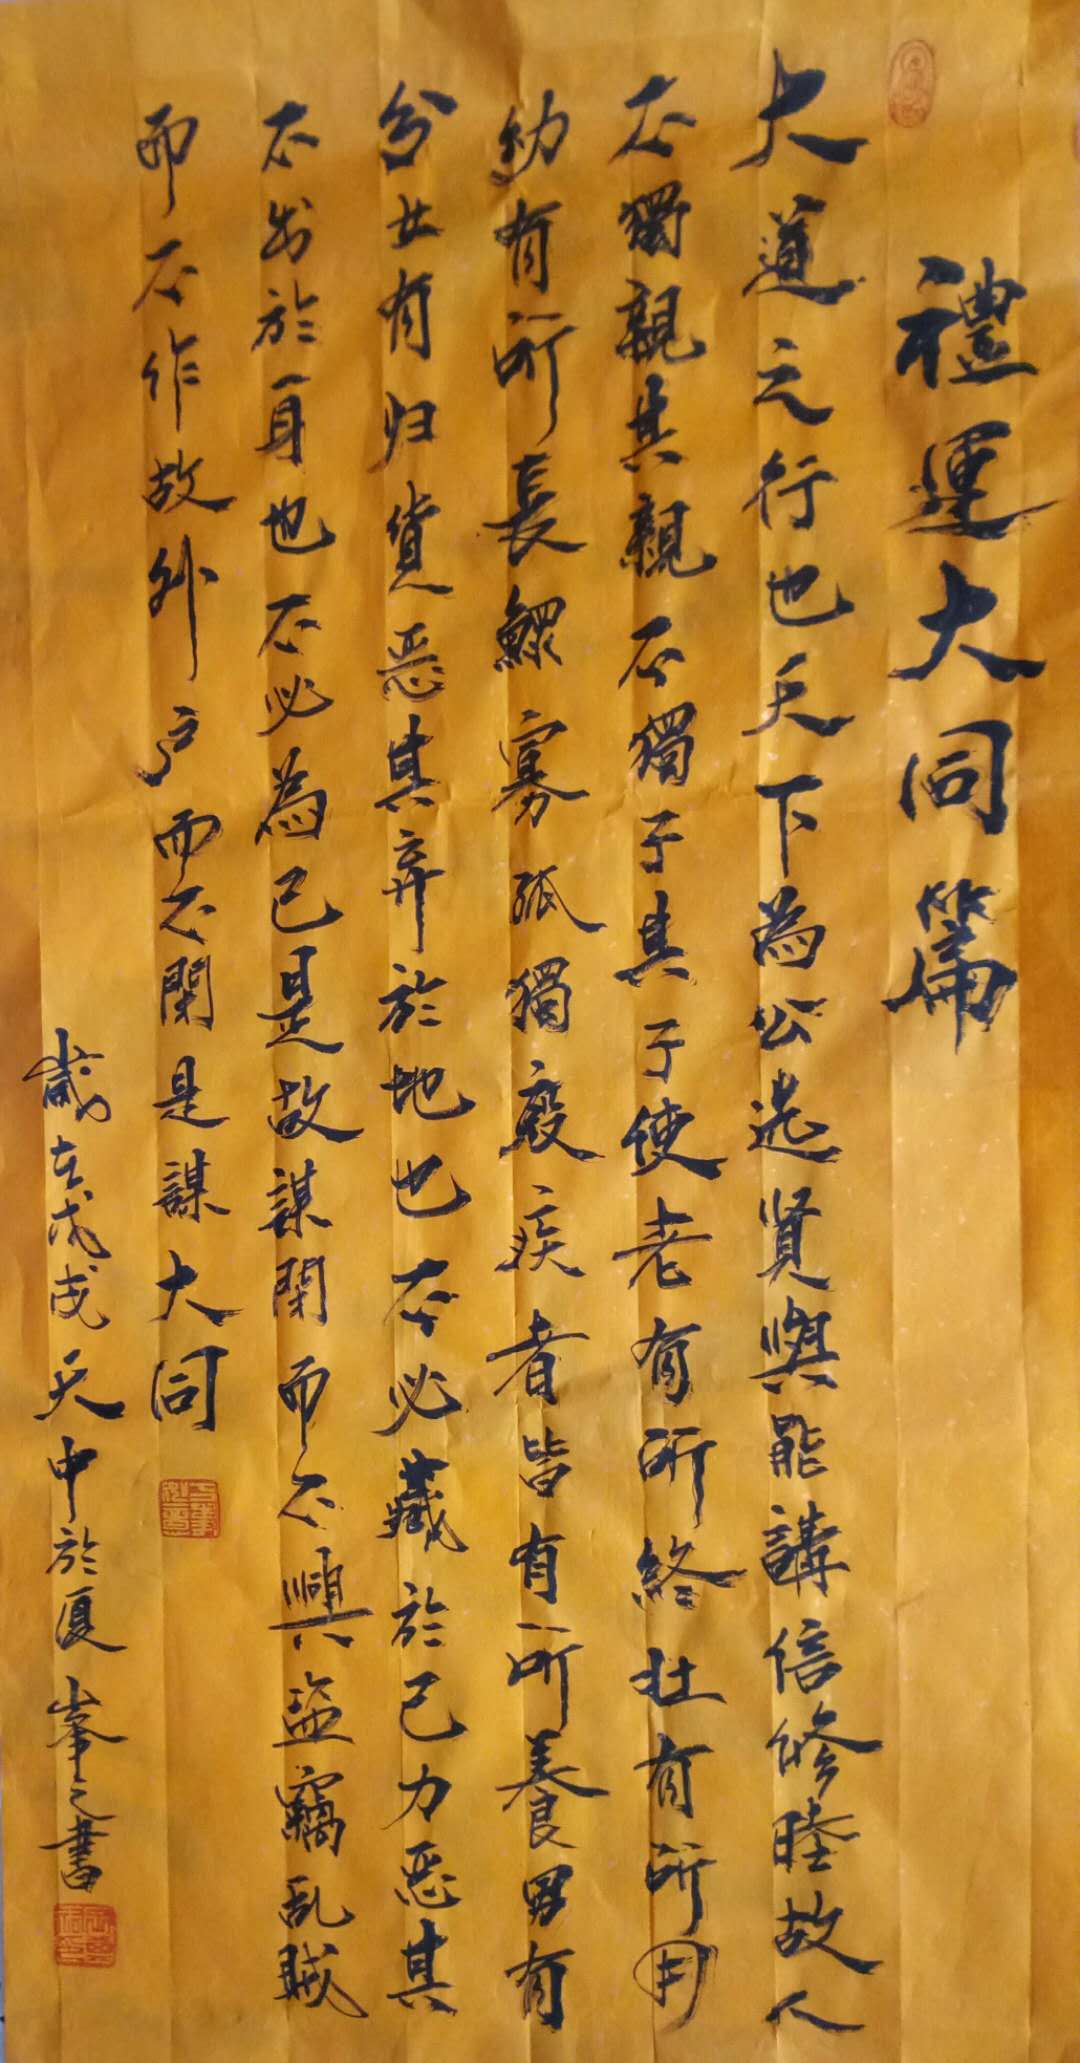 禮運大同篇
大道之行也天下為公选賢與能講信修睦故人
不獨親其親不獨子其子使老有所終壮有所用
幼有所長鰥寡孤獨廢疾者皆有所養男有
分女有归貨恶其弃於地也不必藏於己力恶其
不出於身也不必為己是故謀閉而不興盗竊乱賊
而不作故外户而不閉是謀大同
歲在戊戌天中於夏峯之書